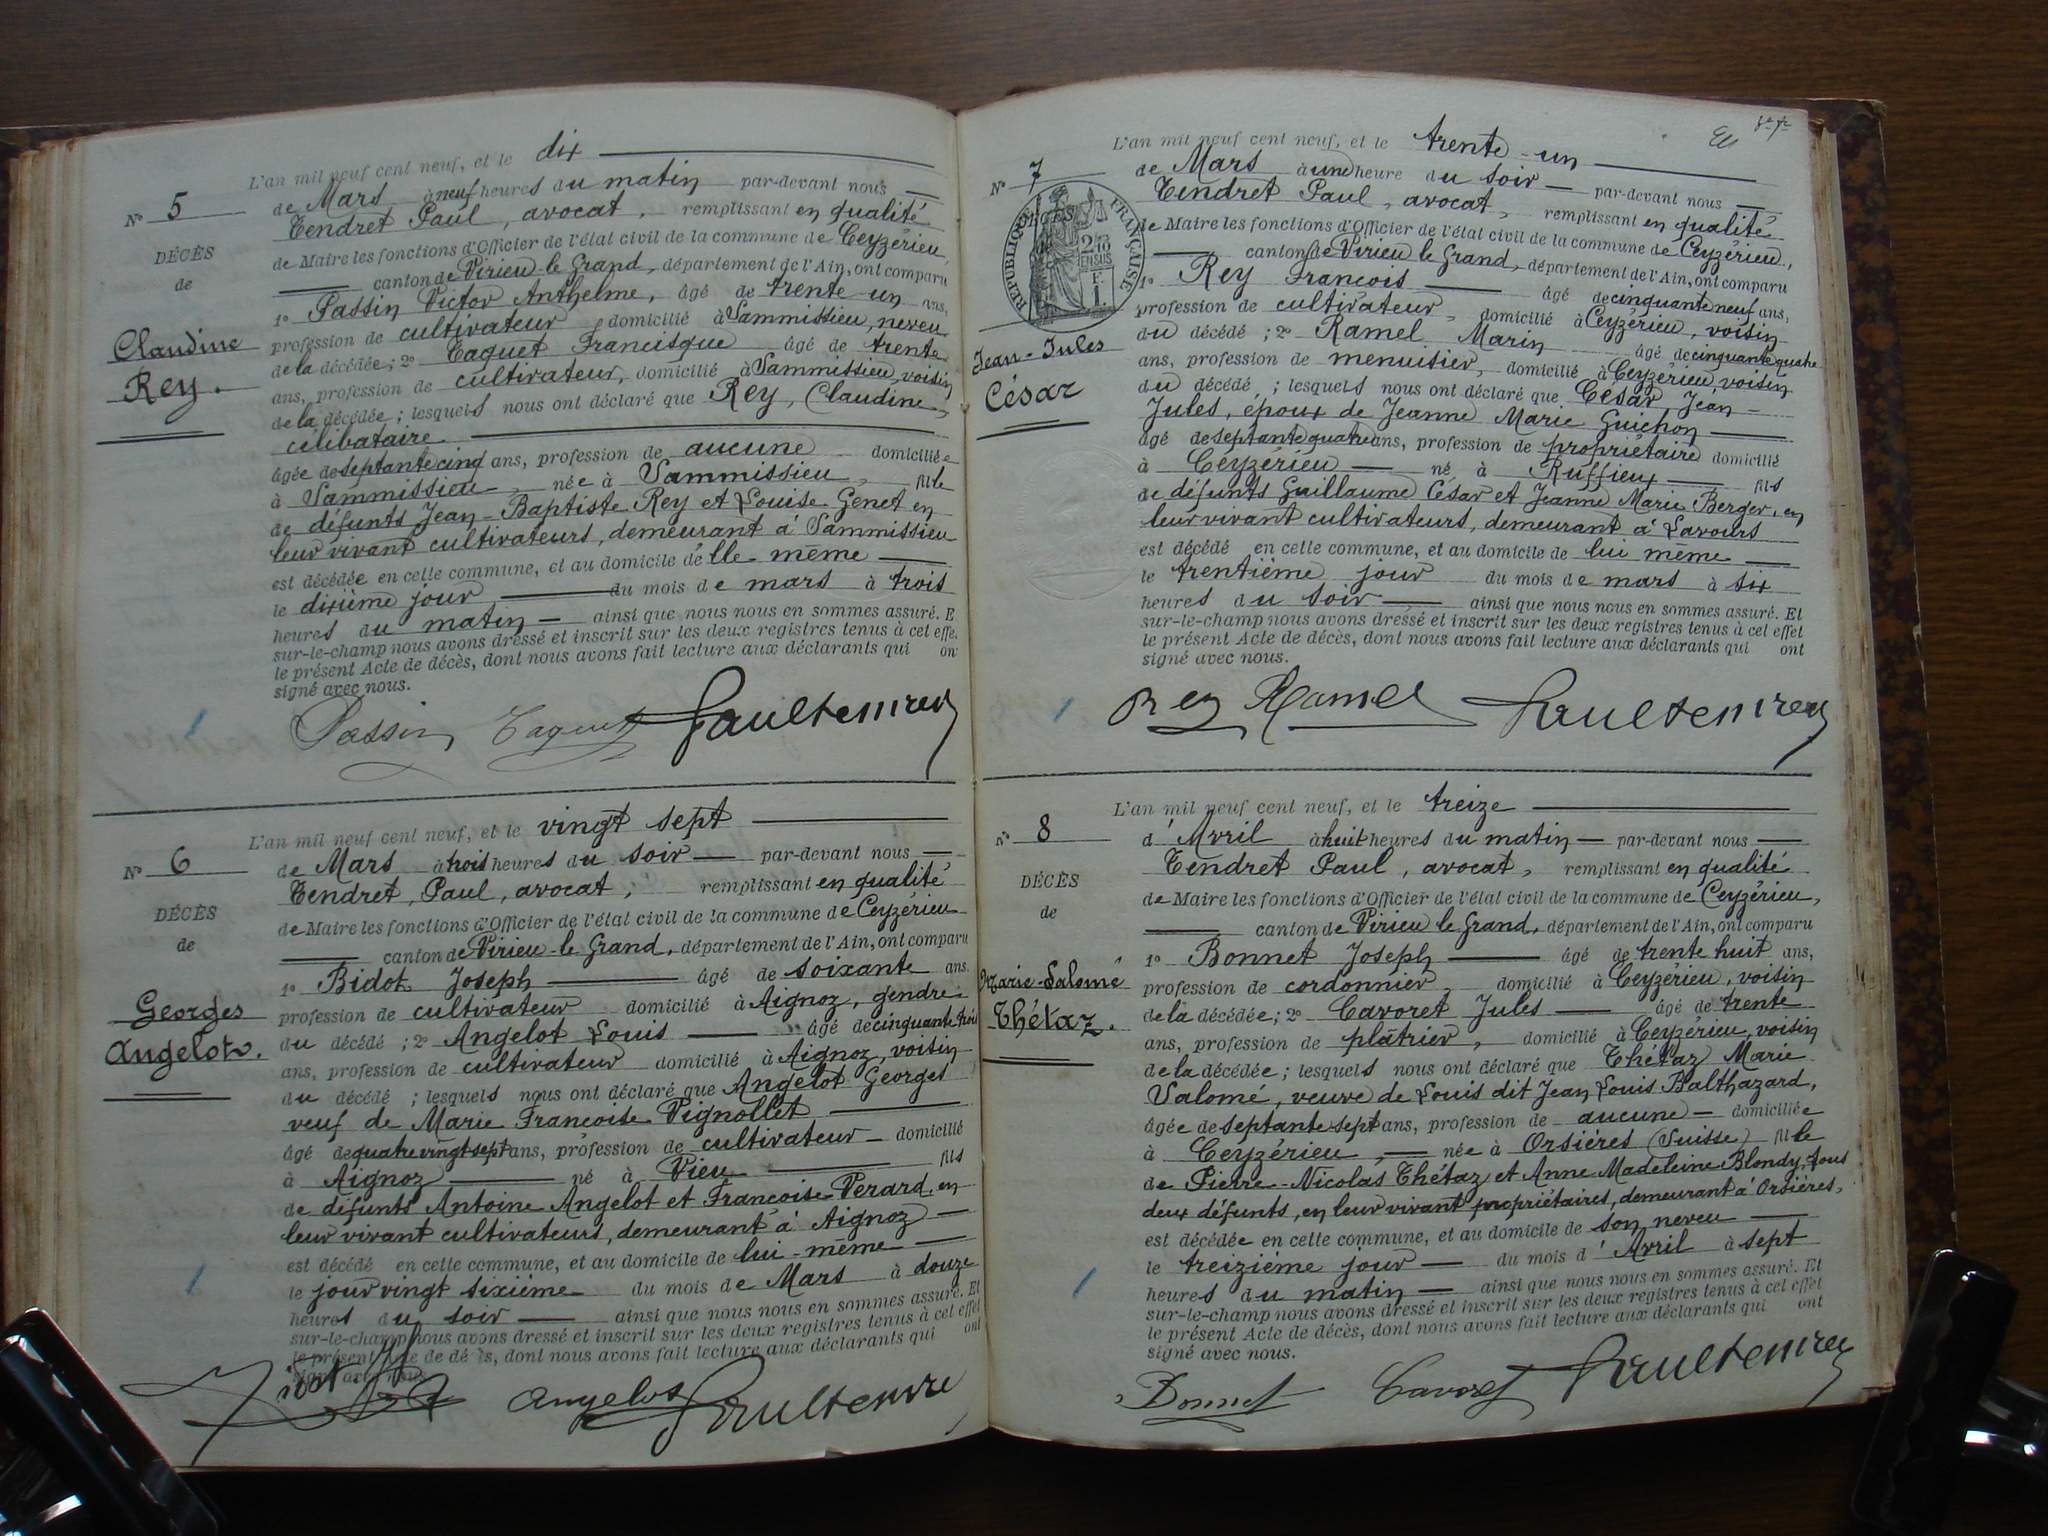 L'an mil neuf cent neuf, et le dix
Nº 5
de Mars à neuf heures du matin par-devant nous
Tendret Paul, avocat, remplissant en qualité
DÉCÈS
de Maire les fonctions d'Officier de l'état civil de la commune de Ceyzérieu,
de
canton de Virieu-le-Grand, département de l'Ain, ont comparu
1º Passin Victor Anthelme, âgé de trente-un ans,
Claudine
profession de cultivateur domicilié à Sammissieu, neveu
de la décédée; 2º Taquet Francisque âgé de trente
Rey.
ans, profession de cultivateur, domicilié à Sammissieu, voisin
de la décédée; lesquels nous ont déclaré que Rey, Claudine,
célibataire
âgée de septante cinq ans, profession de aucune domiciliée
à Sammissieu, née à Sammissieu, fille
de défunts Jean-Baptiste Rey et Louise Genet en
leur vivant cultivateurs, demeurant à Sammissieu
est décédée en cette commune, et au domicile d'elle-même
le dixième jour du mois de mars à trois
heures du matin ainsi que nous nous en sommes assuré. E
sur-le-champ nous avons dressé et inscrit sur les deux registres tenus à cet effe.
le présent Acte de décès, dont nous avons fait lecture aux déclarants qui on
signé avec nous.
Passin Taquet
L'an mil neuf cent neuf, et le vingt sept
Nº 6
de Mars à trois heures du soir par-devant nous
Tendret, Paul, avocat, remplissant en qualité
DÉCÈS
de Maire les fonctions d'Officier de l'état civil de la commune de Ceyzérieu
de
canton de Virieu-le-Grand, département de l'Ain, ont comparu
1º Bidot Joseph âgé de soixante ans.
Georges
profession de cultivateur domicilié à Aignoz, gendre
Angelot.
du décédé; 2º Angelot Louis âgé de cinquante trois
ans, profession de cultivateur domicilié à Aignoz, voisin
du décédé; lesquels nous ont déclaré que Angelot Georges
veuf de Marie Françoise Vignollet
âgé de quatre vingt sept ans, profession de cultivateur domicilié
à Aignoz né à Vieu fils
de défunts Antoine Angelot et Françoise Verard, en
leur vivant cultivateurs, demeurant à Aignoz
est décédé en cette commune, et au domicile de lui-même
le jour vingt sixième du mois de Mars à douze
heures du soir ainsi que nous nous en sommes assuré. Et
sur-le-champ nous avons dressé et inscrit sur les deux registres tenus à cet effet
le présent Acte de décès, dont nous avons fait lecture aux déclarants qui ont
signé avec nous.
Angelot
L'an mil neuf cent neuf, et le trente-un
Nº 7
de Mars à une heure du soir par-devant nous
Tendret Paul, avocat, remplissant en qualité
DÉCÈS
RÉPUBLIQUE FRANÇAISE
2/10 EN SUS
F 1.
de Maire les fonctions d'Officier de l'état civil de la commune de Ceyzérieu,
canton de Virieu le Grand, département de l'Ain, ont comparu
1º Rey François âgé de cinquante neuf ans,
profession de cultivateur, domicilié à Ceyzérieu, voisin
Jean-Jules
du décédé; 2º Ramel Marin âgé de cinquante quatre
César
ans, profession de menuisier, domicilié à Ceyzérieu, voisin
du décédé; lesquels nous ont déclaré que César Jean-
Jules, époux de Jeanne Marie Guichon
âgé de septante quatre ans, profession de propriétaire domicilié
à Ceyzérieu né à Ruffieux fils
de défunts Guillaume César et Jeanne Marie Berger, en
leur vivant cultivateurs, demeurant à Lavours
est décédé en cette commune, et au domicile de lui même
le trentième jour du mois de mars à six
heures du soir ainsi que nous nous en sommes assuré. Et
sur-le-champ nous avons dressé et inscrit sur les deux registres tenus à cet effet
le présent Acte de décès, dont nous avons fait lecture aux déclarants qui ont
signé avec nous.
Rey Ramel
L'an mil neuf cent neuf, et le treize
Nº 8
d'Avril à huit heures du matin par-devant nous
Tendret Paul, avocat, remplissant en qualité
DÉCÈS
de Maire les fonctions d'Officier de l'état civil de la commune de Ceyzérieu,
de
canton de Virieu le Grand, département de l'Ain, ont comparu
1º Bonnet Joseph âgé de trente huit ans,
Marie-Salomé
profession de cordonnier, domicilié à Ceyzérieu, voisin
Thétaz.
de la décédée; 2º Cavoret Jules âgé de trente
ans, profession de plâtrier, domicilié à Ceyzérieu, voisin
de la décédée; lesquels nous ont déclaré que Thétaz Marie
Salomé, veuve de Louis dit Jean Louis Balthazard,
âgée de septante sept ans, profession de aucune domiciliée
à Ceyzérieu, née à Orsières (Suisse) fille
de Pierre-Nicolas Thétaz et Anne Madeleine Blondy, tous
deux défunts, en leur vivant propriétaires, demeurant à Orsières,
est décédée en cette commune, et au domicile de son neveu
le treizième jour du mois d'Avril à sept
heures du matin ainsi que nous nous en sommes assuré. Et
sur-le-champ nous avons dressé et inscrit sur les deux registres tenus à cet effet
le présent Acte de décès, dont nous avons fait lecture aux déclarants qui ont
signé avec nous.
Bonnet Cavoret